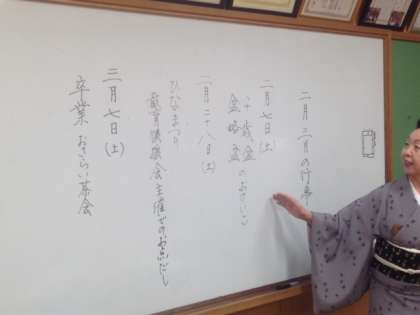 二月三月の行事
二月七日(土)
千歳盆
盆略盆のおけいこ
二月二十八日(土)
ひなまつり
主催でのお点だし
三月七日(土)
卒業 おさらい茶会